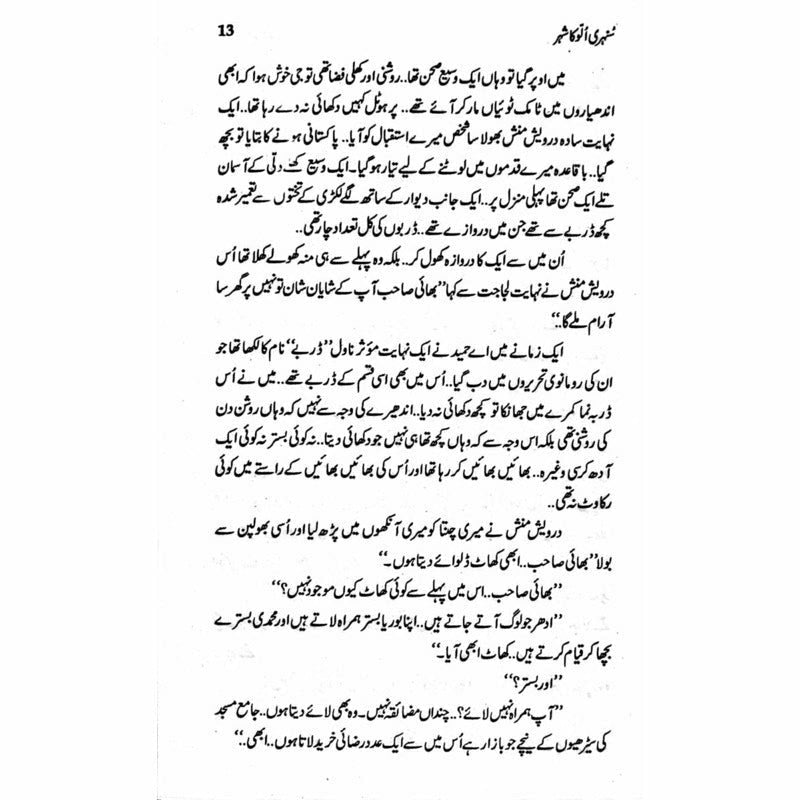 سنہری اُلّو کا شہر 13
میں اوپر گیا تو وہاں ایک وسیع صحن تھا.. روشنی اور کھلی فضا تھی تو جی خوش ہوا کہ ابھی
اندھیاروں میں ٹامک ٹوئیاں مار کر آئے تھے.. پر ہوٹل کہیں دکھائی نہ دے رہا تھا.. ایک
نہایت سادہ درویش منش بھولا سا شخص میرے استقبال کو آیا.. پاکستانی ہونے کا بتایا تو بچھ
گیا.. باقاعدہ میرے قدموں میں لوٹنے کے لیے تیار ہو گیا۔ ایک وسیع کھلے دلّی کے آسمان
تلے ایک صحن تھا پہلی منزل پر.. ایک جانب دیوار کے ساتھ لگے لکڑی کے تختوں سے تعمیر شدہ
کچھ ڈربے سے تھے جن میں دروازے تھے.. ڈربوں کی کل تعداد چار تھی..
اُن میں سے ایک کا دروازہ کھول کر.. بلکہ وہ پہلے سے ہی منہ کھولے کھلا تھا اُس
درویش منش نے نہایت لجاجت سے کہا ”بھائی صاحب آپ کے شایان شان تو نہیں پر گھر سا
آرام ملے گا..“
ایک زمانے میں اے حمید نے ایک نہایت مؤثر ناول ”ڈربے“ نام کا لکھا تھا جو
ان کی رومانوی تحریروں میں دب گیا.. اُس میں بھی اسی قسم کے ڈربے تھے.. میں نے اُس
ڈربہ نما کمرے میں جھانکا تو کچھ دکھائی نہ دیا.. اندھیرے کی وجہ سے نہیں کہ وہاں روشن دن
کی روشنی تھی بلکہ اس وجہ سے کہ وہاں کچھ تھا ہی نہیں جو دکھائی دیتا.. نہ کوئی بستر نہ کوئی ایک
آدھ کرسی وغیرہ.. بھائیں بھائیں کر رہا تھا اور اُس کی بھائیں بھائیں کے راستے میں کوئی
رکاوٹ نہ تھی..
درویش منش نے میری چِنتا کو میری آنکھوں میں پڑھ لیا اور اُسی بھولپن سے
بولا ”بھائی صاحب.. ابھی کھاٹ ڈلوائے دیتا ہوں۔“
”بھائی صاحب.. اس میں پہلے سے کوئی کھاٹ کیوں موجود نہیں؟“
”ادھر جو لوگ آتے جاتے ہیں.. اپنا بوریا بستر ہمراہ لاتے ہیں اور محمدی بسترے
بچھا کر قیام کرتے ہیں.. کھاٹ ابھی آیا۔“
”اور بستر؟“
”آپ ہمراہ نہیں لائے؟.. چنداں مضائقہ نہیں۔ وہ بھی لائے دیتا ہوں.. جامع مسجد
کی سیڑھیوں کے نیچے جو بازار ہے اُس میں سے ایک عدد رضائی خرید لاتا ہوں.. ابھی..“